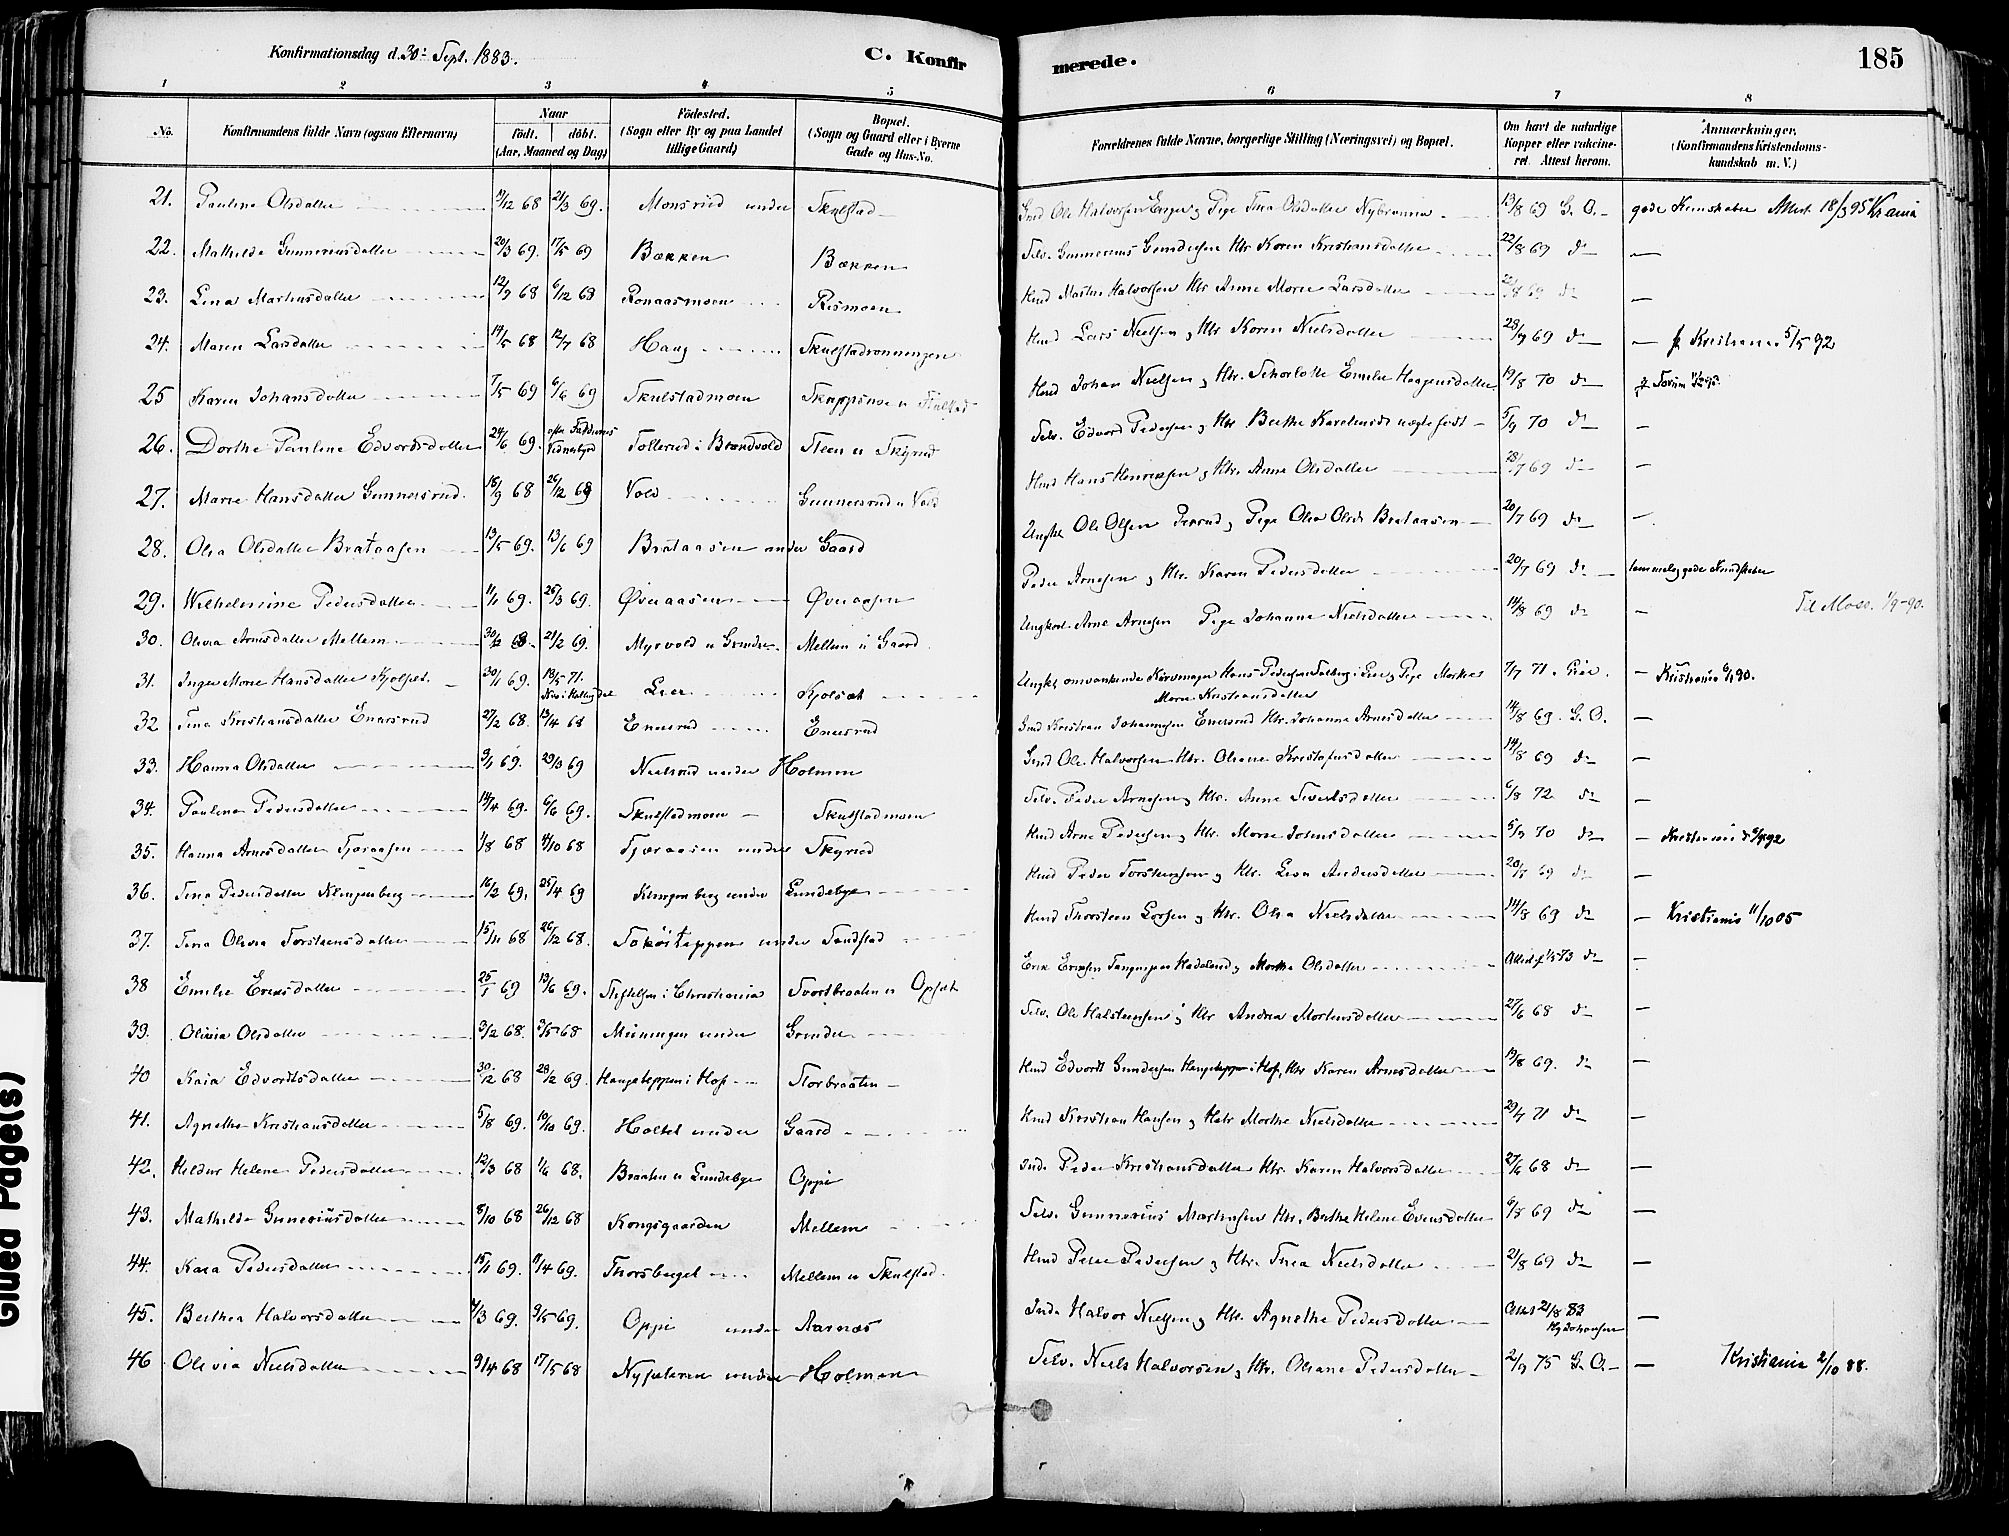 Konfirmationsdag d. 30: Sept. 1883.
C. Konfirmerede.
185
1 2 3 4 5 6 7 8
No.
Konfirmandens fulde Navn (ogsaa Efternavn)
Naar
født. døbt.
(Aar, Maaned og Dag)
Fødested.
(Sogn eller By og paa Landet
tillige Gaard)
Bopæl.
(Sogn og Gaard eller i Byerne
Gade og Hus-No.
Forældrenes fulde Navne, borgerlige Stilling (Næringsvei) og Bopæl.
Om havt de naturlige
Kopper eller vakcineret. Attest herom.
Anmærkninger.
(Konfirmandens Kristendomskundskab m. V.)
21. Pauline Olsdatter 11/12 68 21/3 69. Monsrud under Skulstad 13/8 69 G. O. gode Kundskaber Attest 18/3 95 Krania
22. Mathilde Gunneriusdatter 20/3 69. 17/5 69 Bækken Bækken Selv. Gunnerius Gundersen Htr Karen Kristiansdatter 22/8 69 do —
23. Lina Martinsdatter 12/9 68 6/12 68 Ronaasmoen Rismoen Hmd Martin Halvorsen Htr Anne Marie Larsdatter do —
24. Maren Larsdatter 14/5 68 12/7 68 Haug Skulstadrønningen Hmd Lars Nielsen & Htr Karen Nielsdatter 28/9 69 do — Kristiania 5/5 92
25 Karen Johansdatter 7/5 69 6/6 69 Skulstadmoen Hmd Johan Nielsen & Htr. Scharlotte Emilie Haagensdatter 19/8 70 do
26. Dorthe Pauline Edvardsdatter 24/6 69. Tollerud i Brandvold Steen u Skyrud Selv. Edvard Pedersen & Htr Berthe Karelinusd ægtefødt 5/9 70 do —
27. Marie Hansdatter Gunnersrud. 18/9 68 26/12 68 Vold Gunnersrud u Vold Hmd Hans Henriksen & Htr. Anne Olsdatter 18/7 69 do —
28. Olea Olsdatter Brataasen 13/5 69. 13/6 69 Brataasen under Gaard Ungk Ole Olsen & Pige Olea Olsd Brataasen 20/7 69 do —
29. Wilhelmine Pedersdatter 11/1 69. 26/3 69. Øveraasen Øveraasen Peder Arnesen & Htr. Karen Pedersdatter 20/7 69 do temmelig gode Kundskaber
30. Olivia Arnesdatter Mellem 30/12 68 21/2 69. Myrvold u Grinder Mellem u Gaard Ungkarl Arne Arnesen Pige Johanne Nielsdatter 14/8 69 do — Til Moss. 1/9-90.
31. Inger Marie Hansdatter Kjolset 30/1 69. 18/5 71. Lier Kjolsæt Marie Kristiansdatter 7/7 71 — Kristiania 90.
32 Tina Kristiansdatter Enersrud 27/2 68. 13/4 68 Enersrud Enersrud Gmd Kristian Johannesen Enersrud Htr. Johanne Arnesdatter 14/8 69. G. O. —
33. Hanna Olsdatter 3/1 69. 29/3 69 Nielsrud under Holmen Gmd Ole Halvorsen Htr. Oliane Kristofersdatter 14/8 69 do —
34. Pauline Pedersdatter 14/4 69. 6/6 69. Skulstadmoen Skulstadmoen Selv. Peder Arnesen & Htr. Anne Sivertsdatter 6/8 72 do —
35. Hanna Arnesdatter Tjæraasen 1/8 68 4/10 68 Tjæraasen under Skyrud Hmd Arne Pedersen & Htr. Marie Johnsdatter 5/9 70 do — Kristiania 92
36. Tina Pedersdatter Klingenberg 16/2 69. 25/4 69 Klingenberg under Lundeby Hmd Peder Torstensen & Htr. Lisa Andersdatter 20/7 69 do —
37. Tina Olivia Torstensdatter 15/11 68 26/12 68. under Sandstad Hmd Thorsteen Larsen & Htr. Olea Nielsdatter 14/8 69 do — Kristiania 11/10 05
38 Emilie Eriksdatter 25/1 69 13/6 69. Stiftelsen i Christiania Svartbraaten u Opset Erik Eriksen Hadeland & Marthe Olsdatter Attest 73 do —
39. Olivia Olsdatter 3/2 68. 3/5 68 Moiningen under Grinder Selv. Ole Halstensen & Htr Andrea Mortensdatter 27/6 68 do —
40 Kaia Edvardsdatter 30/12 68 28/2 69. Haugeteppen i Hof Storbraaten Hmd Edvardt Gundersen Haugeteppen i Hof, Htr Karen Arnesdatter 19/8 69. do —
41. Agnethe Kristiansdatter 5/8 69. 10/10 69. Holtet under Gaard Hmd Kristian Hansen & Htr Marthe Nielsdatter 29/7 71 do —
42. Hildur Helene Pedersdatter 12/3 68 1/6 68. Braaten u Lundeby Oppi Inds Peder Kristiansdatter Htr. Karen Halvorsdatter 27/6 68 do —
43. Mathilde Guneriusdatter 8/10 68 26/12 68 Kongsgaarden Mellem Selv. Gunnerius Martinsen Htr. Berthe Helene Evensdatter 6/8 69 do —
44. Kaia Pedersdatter 15/1 69. 11/4 69. Thorsberget Mellem u Skulstad. Hmd Peder Pedersen & Htr. Thea Nielsdatter 21/8 69 do —
45. Berthea Halvorsdatter 4/3 69. 9/5 69. Oppi under Aarnæs Inds Halvor Nielsen & Htr. Agnethe Pedersdatter Attest 21/8 83 Johansen —
46 Olivia Nielsdatter 9/4 68 17/5 68 under Holmen Selv. Niels Halvorsen & Htr. Oliane Pedersdatter 2/9 75 G. O. — Kristiania 2/10 88.
Glued Page(s)